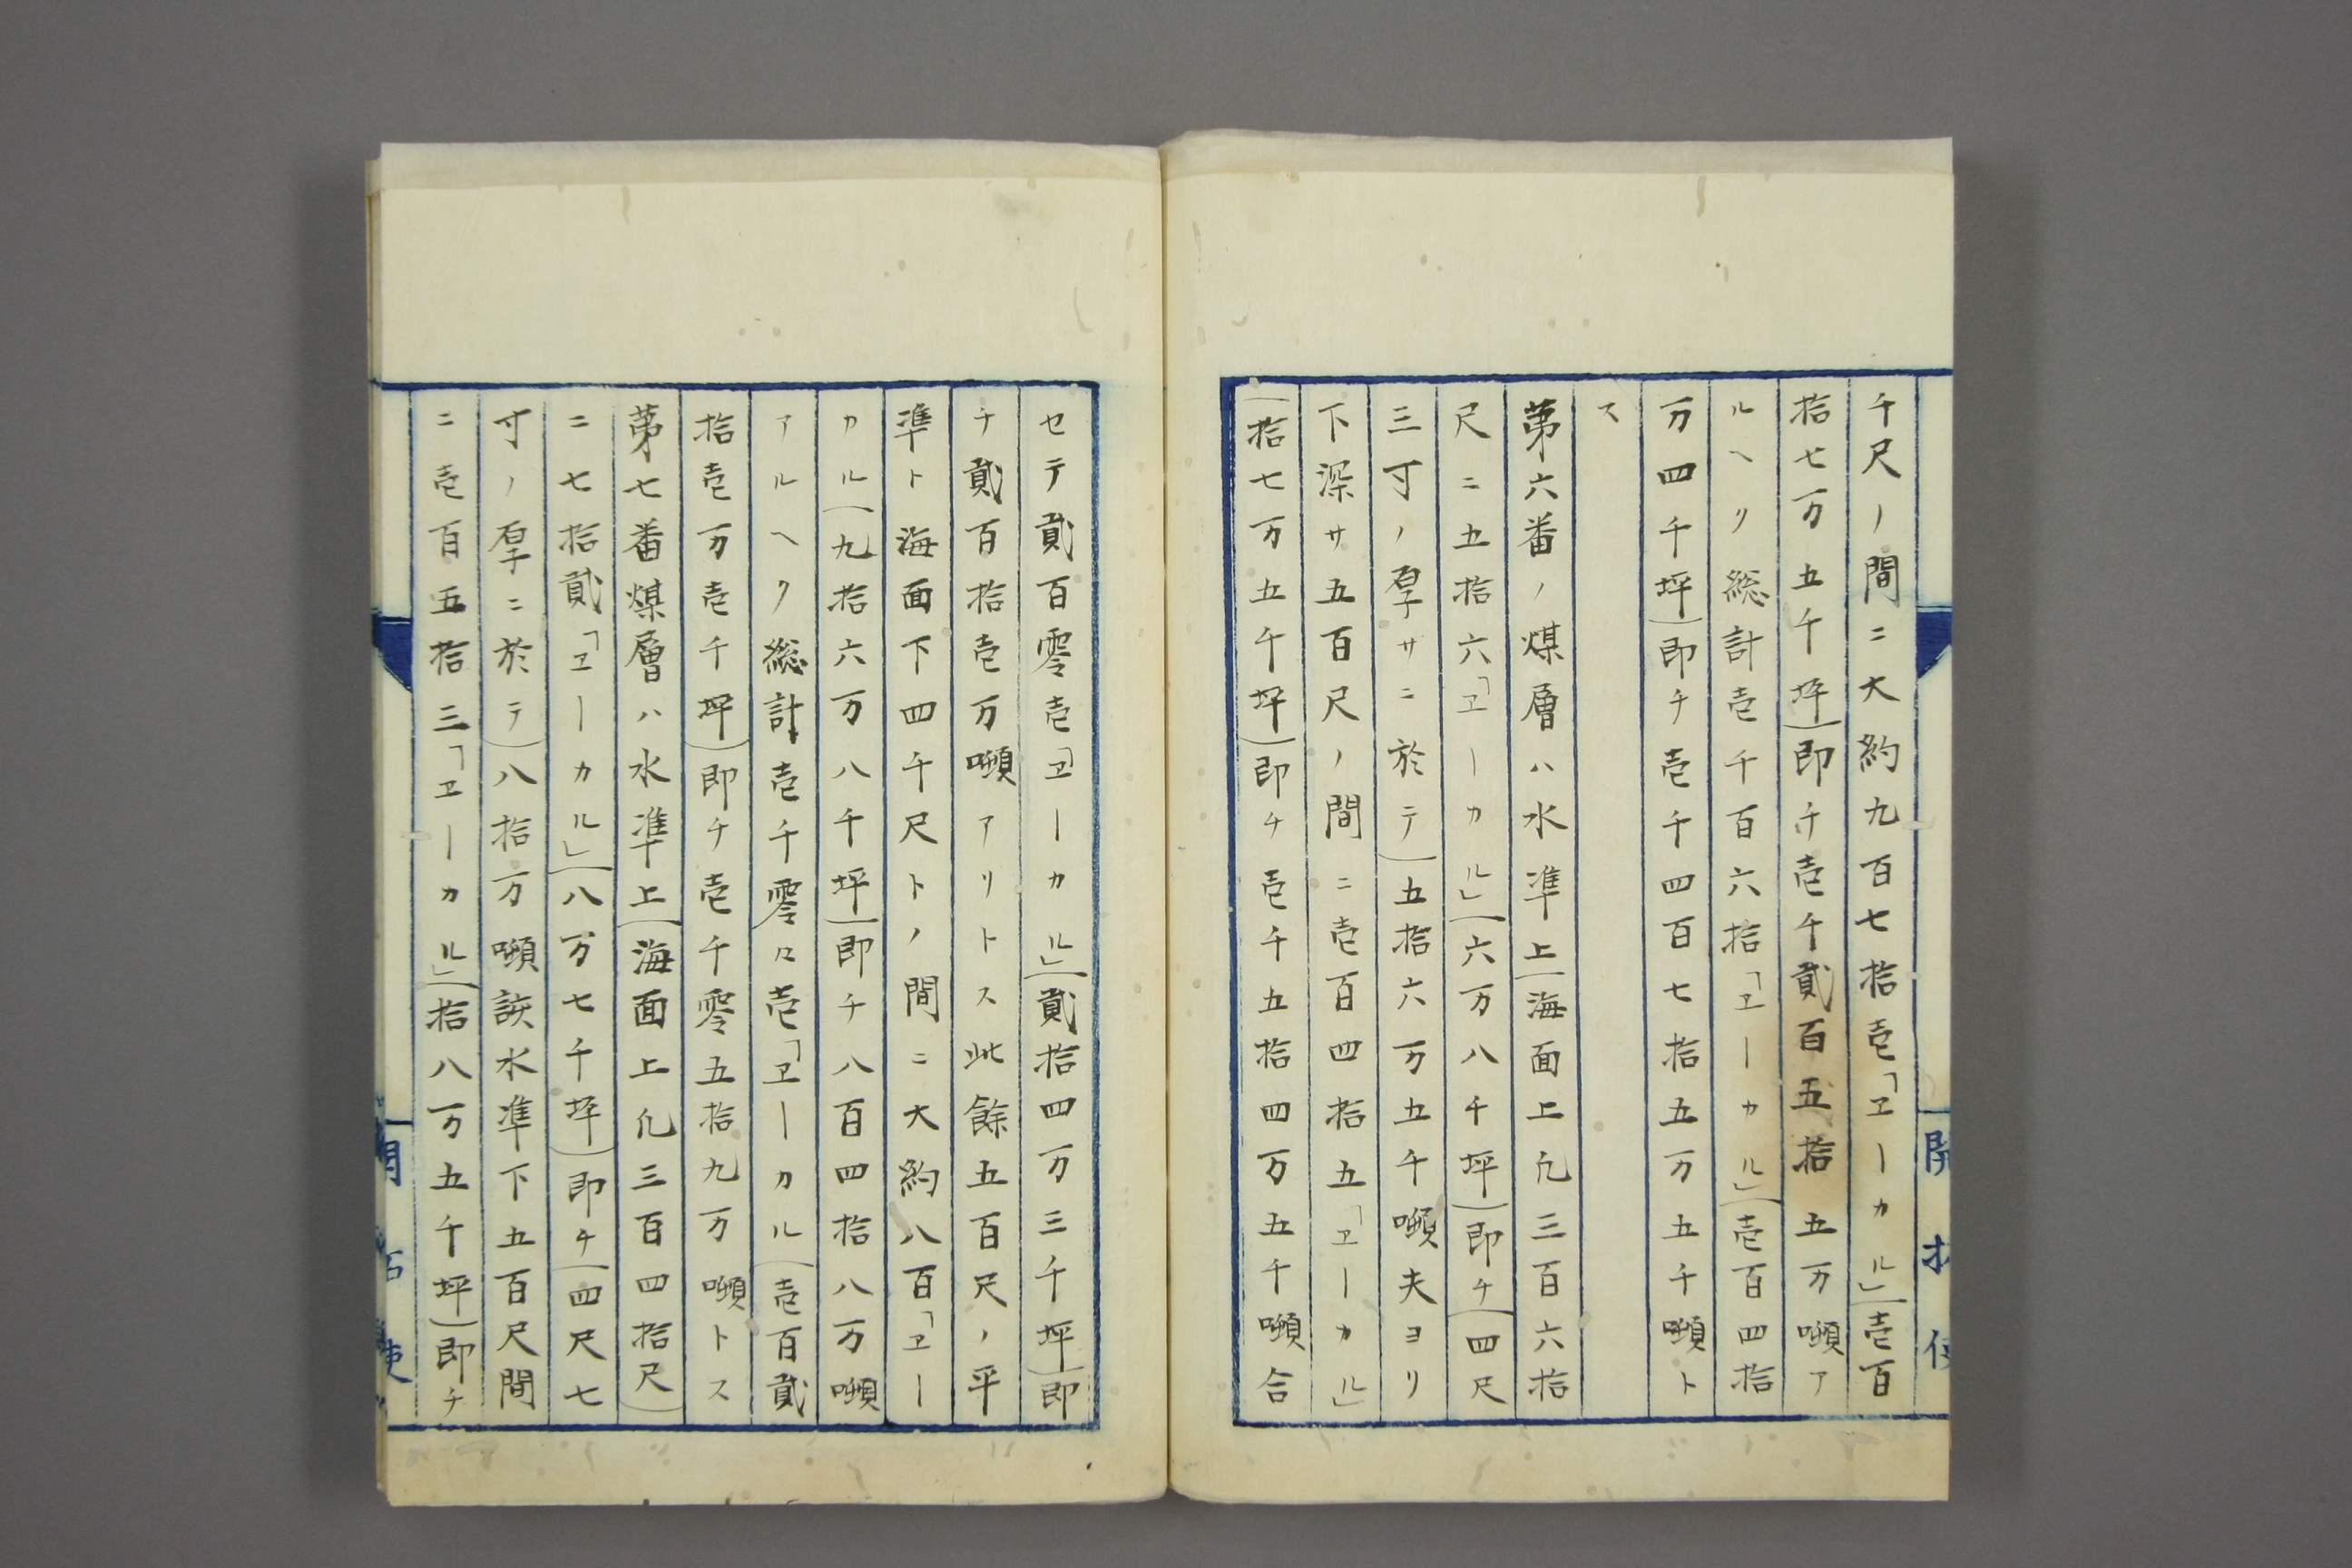 千尺ノ間ニ大約九百七拾壱「ヱーカル」(壱百
拾七万五千坪)即チ壱千貳百五拾五万噸ア
ルヘリ総計壱千百六拾「ヱーカル」(壱百四拾
万四千坪)即チ壱千四百七拾五万五千噸ト
ス
第六番ノ煤層ハ水準上(海面上凢三百六拾
尺ニ五拾六「ヱーカル」(六万八千坪)即チ(四尺
三寸ノ厚サニ於テ)五拾六万五千噸夫ヨリ
下深サ五百尺ノ間ニ壱百四拾五「ヱーカル」
(拾七万五千坪)即チ壱千五拾四万五千噸合
セテ貳百零壱「ヱーカル」(貳拾四万三千坪)即
チ貳百拾壱万噸アリトス此餘五百尺ノ平
準ト海面下四千尺トノ間ニ大約八百「ヱー
カル(九拾六万八千坪)即チ八百四拾八万噸
アルヘク総計壱千零々壱「ヱーカル(壱百貳
拾壱万壱千坪)即チ壱千零五拾九万噸トス
第七番煤層ハ水準上(海面上凢三百四拾尺)
ニ七拾貳「ヱーカル」(八万七千坪)即チ(四尺七
寸ノ厚ニ於テ)八拾万噸該水準下五百尺間
ニ壱百五拾三「ヱーカル」(拾八万五千坪)即チ
開拓使